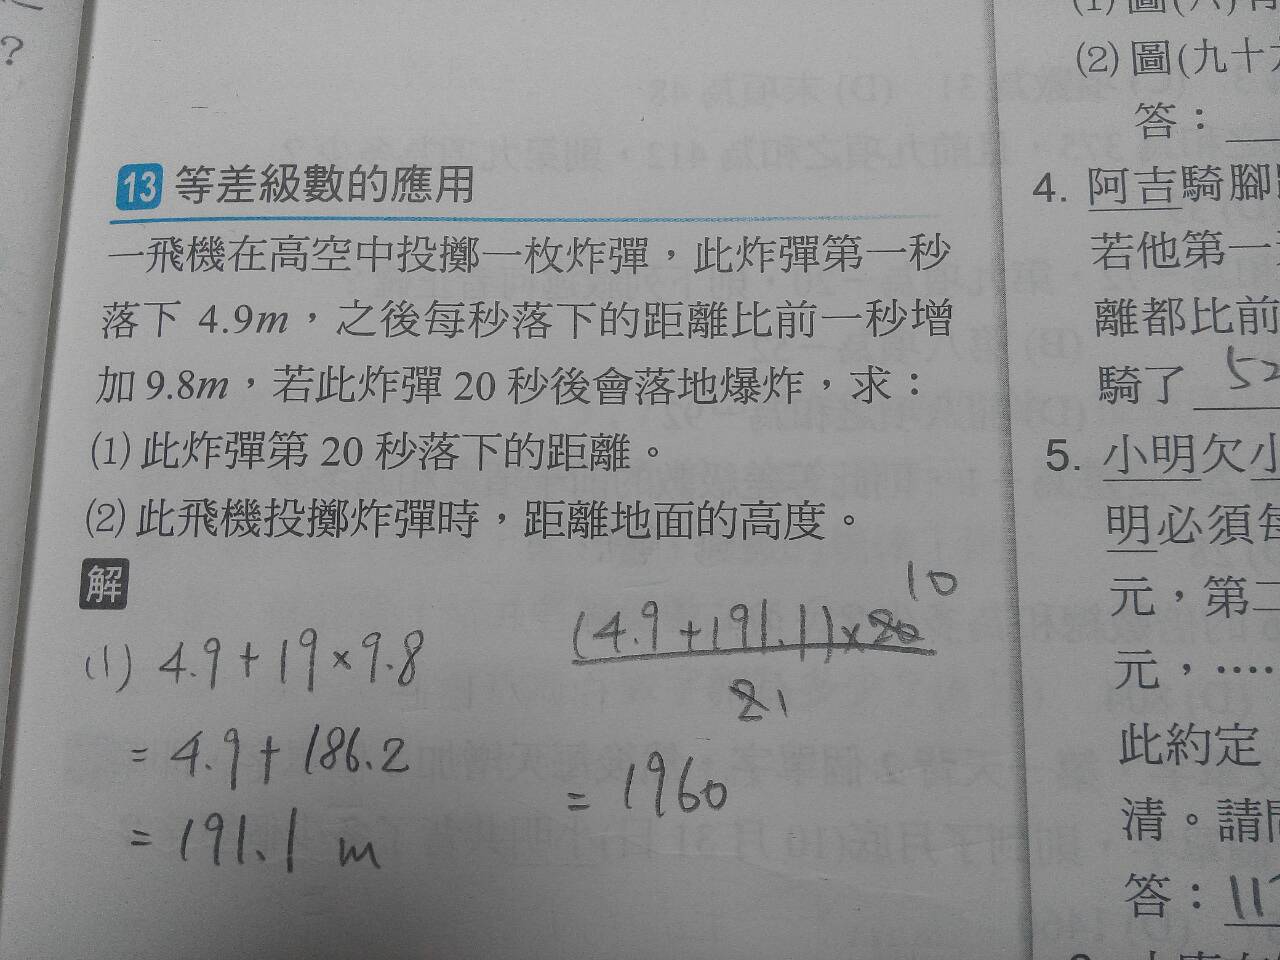 ?
13 等差級數的應用
一飛機在高空中投擲一枚炸彈，此炸彈第一秒
落下 4.9m，之後每秒落下的距離比前一秒增
加 9.8m，若此炸彈 20 秒後會落地爆炸，求：
(1) 此炸彈第 20 秒落下的距離。
(2) 此飛機投擲炸彈時，距離地面的高度。
解
(1) 4.9+19×9.8
= 4.9+186.2
= 191.1 m
10
(4.9+191.1)×20
21
= 1960
(2) 圖(九十
答：
4. 阿吉騎腳
若他第一
離都比前
騎了 52
5. 小明欠小
明必須每
元，第二
元，····
此約定
清。請問
答：11